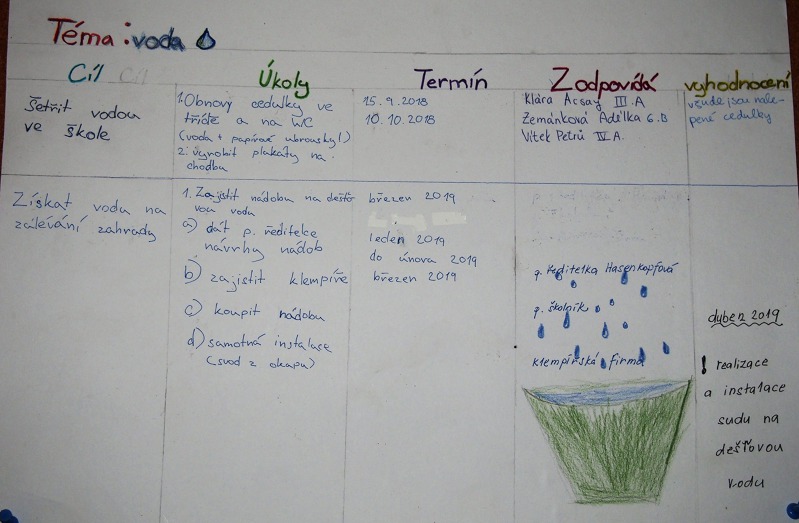 Téma: voda
Cíl
Úkoly
Termín
Zodpovídá
vyhodnocení
Šetřit vodou
ve škole
1. Obnovy cedulky ve
třídě a na WC
(voda + papírové ubrousky!)
2. vyrobit plakáty na
chodbu
15. 9. 2018
10. 10. 2018
Klára Acsay III. A
Zemánková Adélka 6. B
Vítek Petrů IV. A.
všude jsou nale-
pené cedulky
Získat vodu na
zalévání zahrady
1. Zajistit nádobu na dešťo
vou vodu
a) dát p. ředitelce
návrhy nádob
b) zajistit klempíře
c) koupit nádobu
d) samotná instalase
(svod z okapu)
březen 2019
leden 2019
do února 2019
březen 2019
p. ředitelka Hasenkopfová
p. školník
klempířská firma
duben 2019
! realizace
a instalace
sudu na
dešťovou
vodu